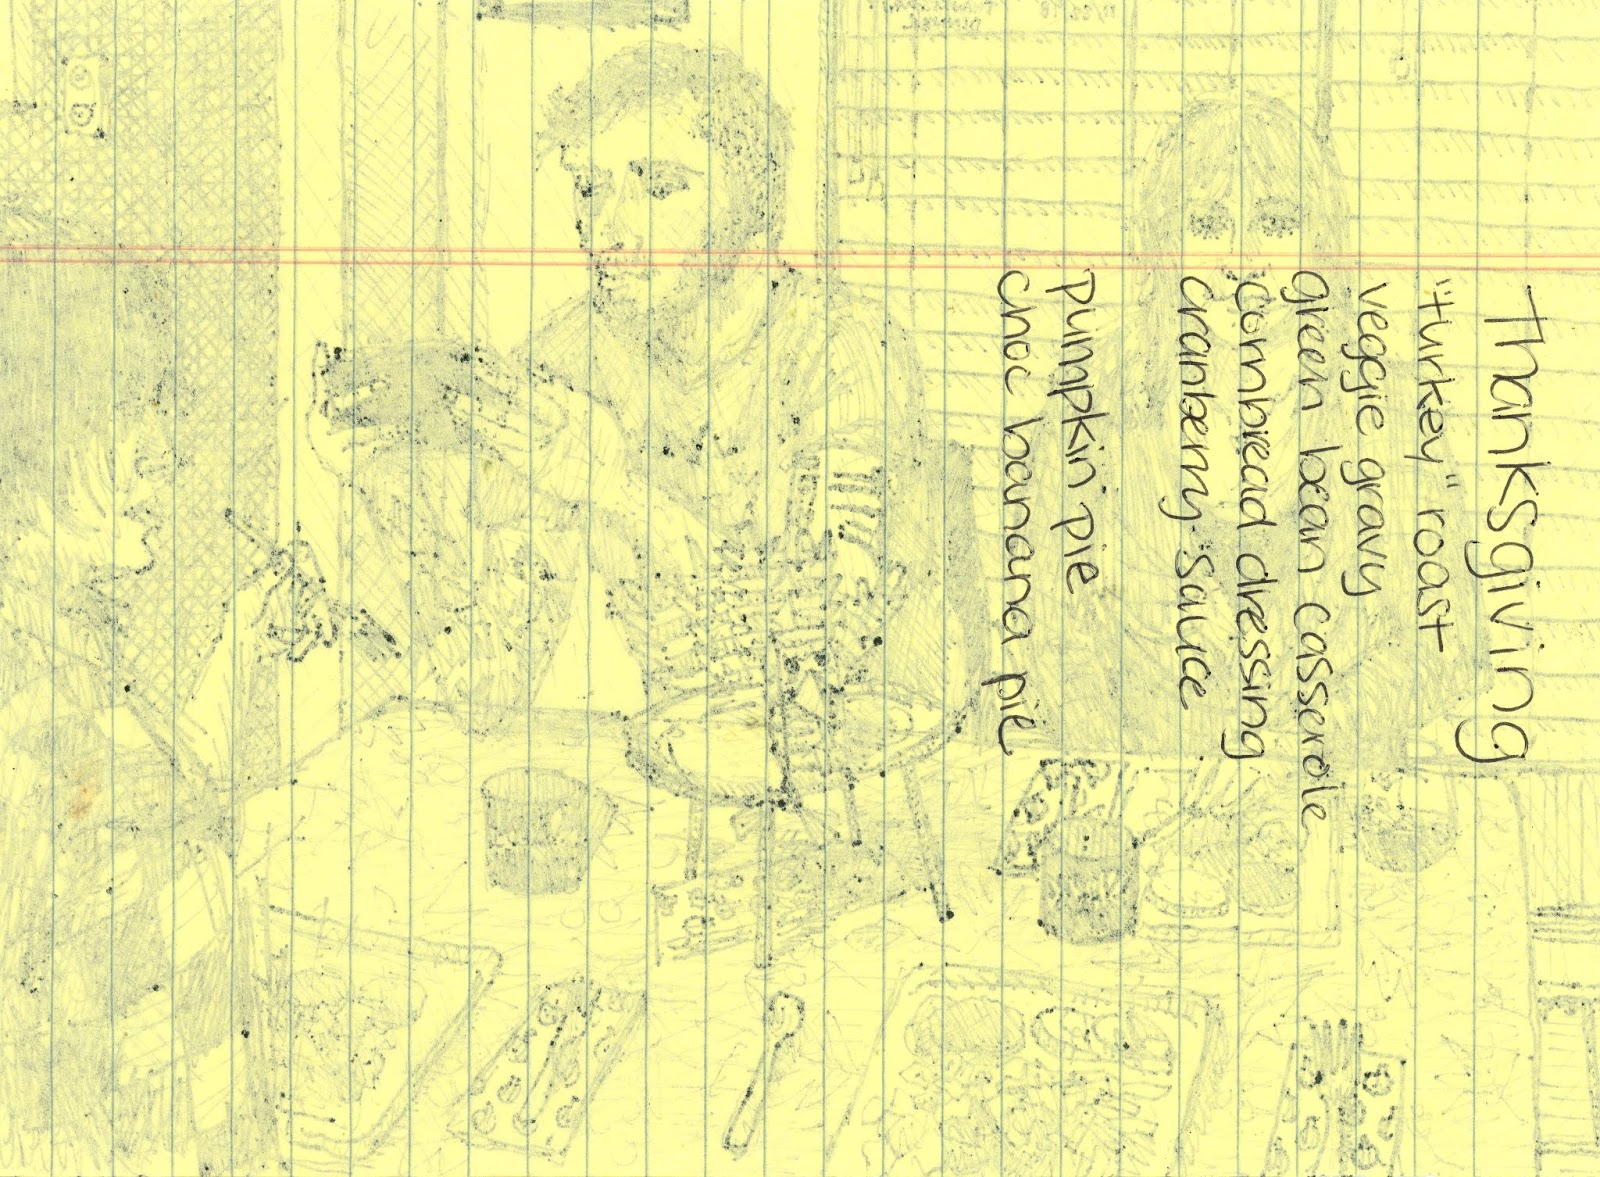 Thanksgiving
"turkey" roast
veggie gravy
green bean casserole
cornbread dressing
cranberry sauce
pumpkin pie
choc banana pie